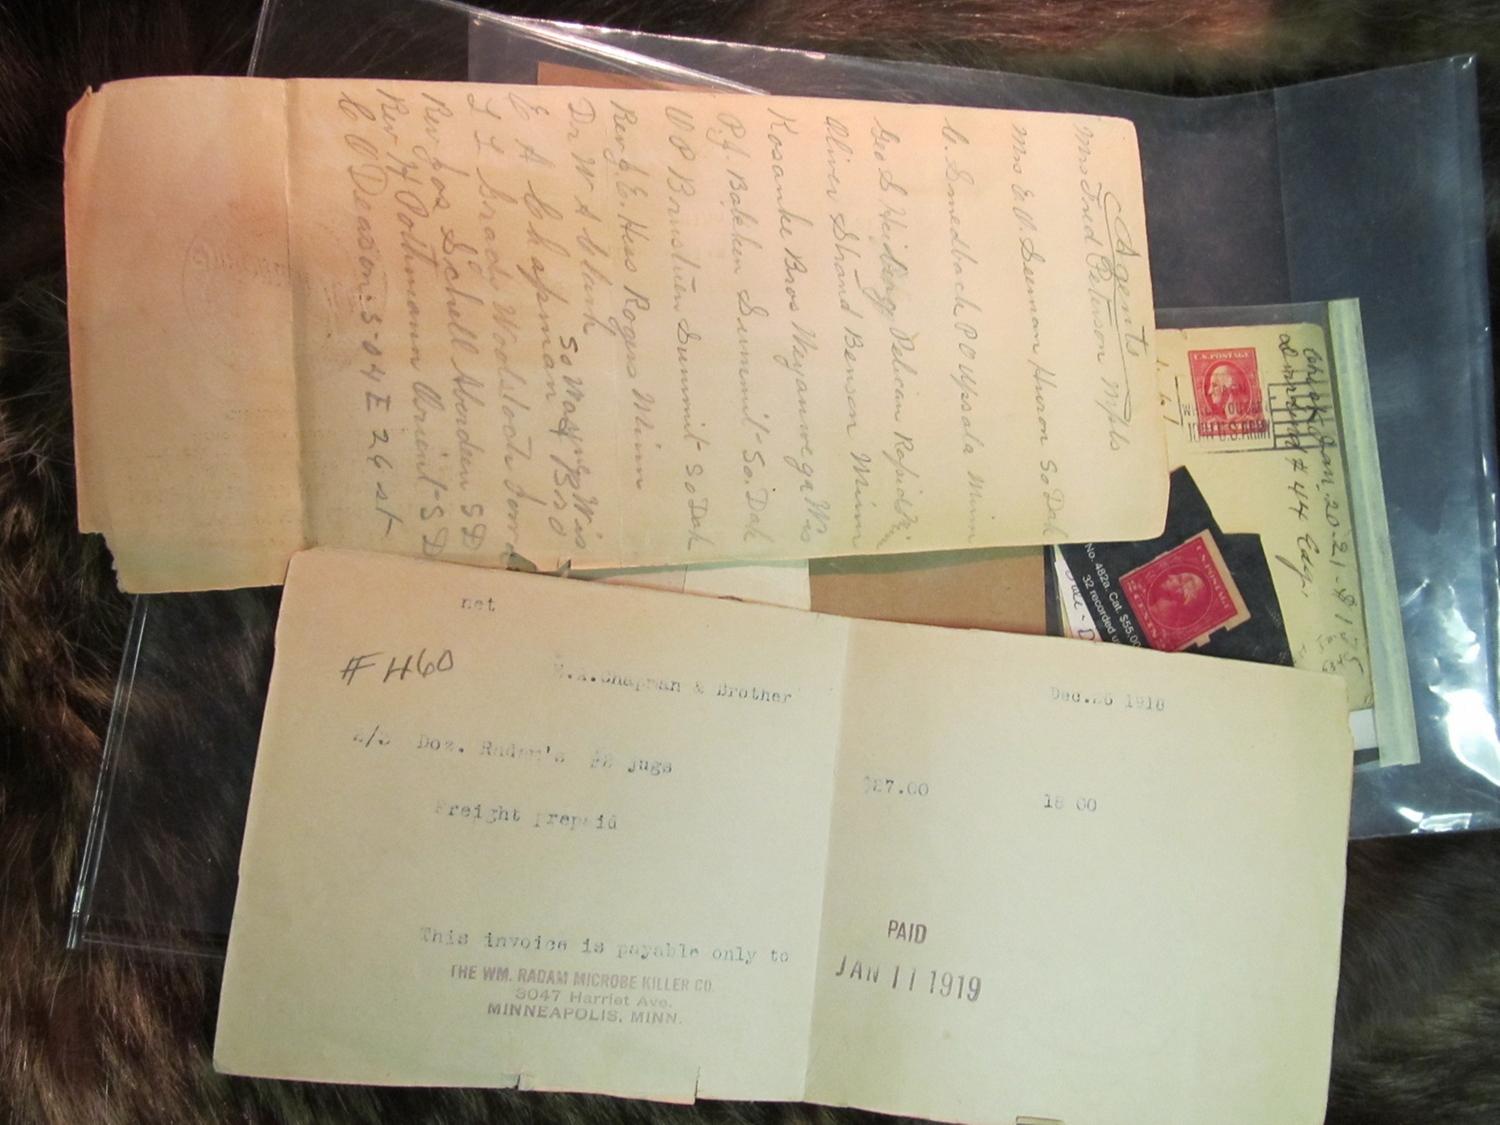 Agents
Mrs Fred Peterson Mpls
Mrs E.O. Seeman Huron So Dak
C. Smedbach P O Upsala Minn
Geo S Heidberg Pelican Rapids
Oliver Strand Benson Minn
Kosanke Bros Weyauwega Wis
P.J. Bakken Summit So. Dak
O P Brustuen Summit So Dak
Rev J E. Hess Rogers Minn
Dr W A Clark
So Wayne Wis
E A Chapman & Bro
L L Woodstock
Rev Jos Schell Aberdeen S D
Rev H Pothmann Orient S D
C O Deason 3-04 E 26 st
U.S. POSTAGE
Jan. 20.21 - $175
Diamond # 44 Edge,
U.S. POSTAGE
2 CENTS 2
No. 482a. Cat. $55,00
32 recorded
net
#460
E.A.Chapman & Brother
Dec.26 1918
2/3 Doz. Radam's #2 jugs
$27.00
18 00
Freight prepaid
This invoice is payable only to
THE WM. RADAM MICROBE KILLER CO.
3047 Harriet Ave.
MINNEAPOLIS, MINN.
PAID
JAN 11 1919